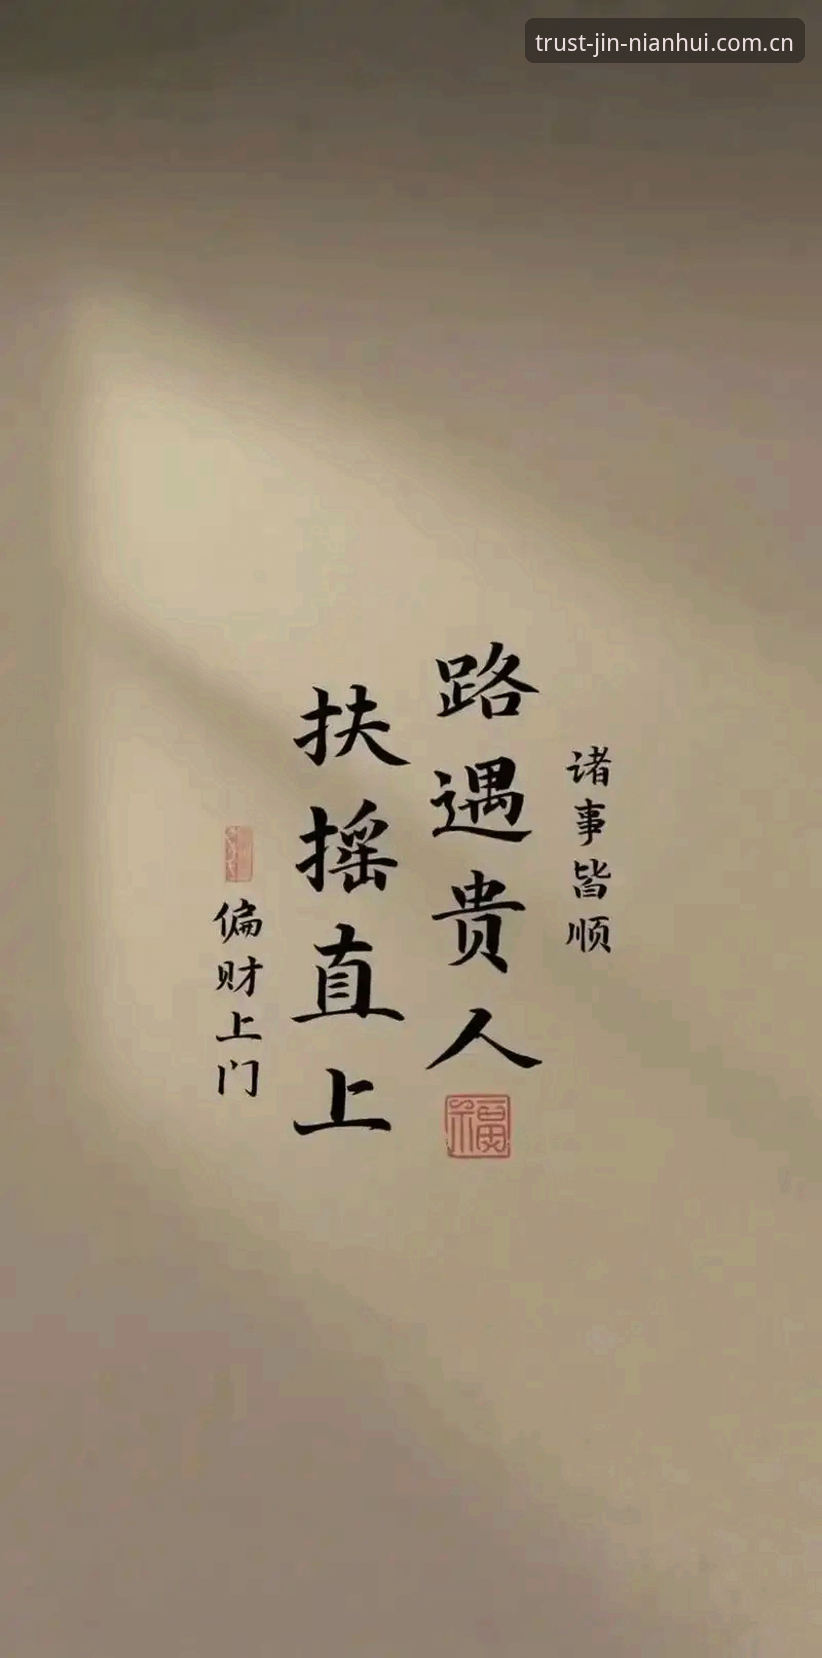 trust-jin-nianhui.com.cn
诸事皆顺
路遇贵人
福
扶摇直上
偏财上门